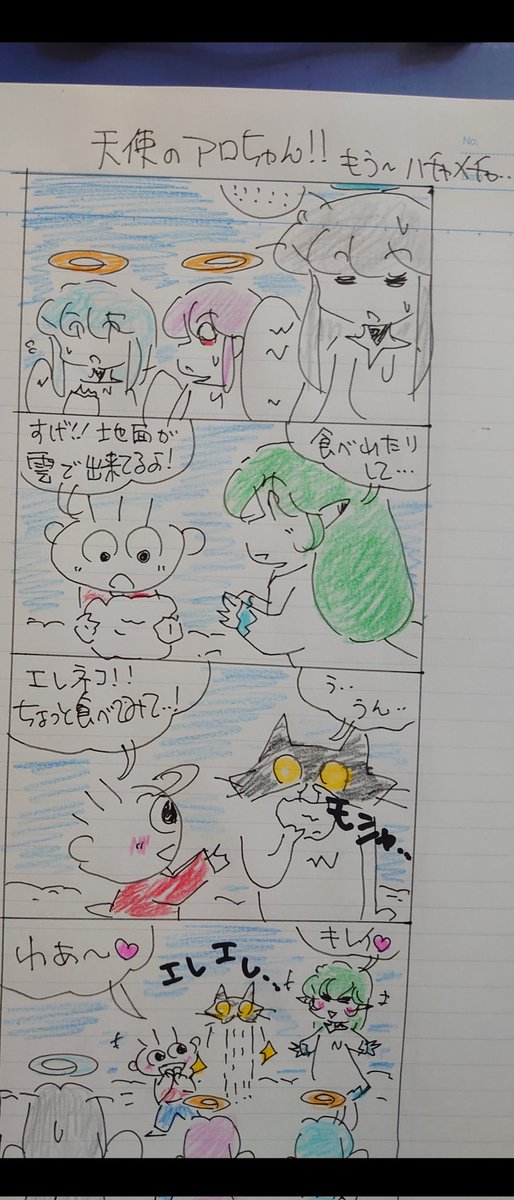 No.
天使のアロちゃん!!
もう〜ハチャメチャ‥
‥‥‥
すげ!!地面が
雲で出来てるよ!
食べれたり
して…
エレネコ!!
ちょっと食べてみて‥!
う‥
うん‥
モシャ‥
わぁ〜
エレエレ‥
キレイ